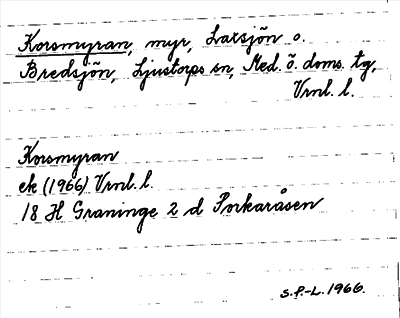 Korsmyran, myr, Laxsjön o.
Bredsjön, Ljustorps sn, Med. ö. doms. tg,
Vrnl. l.
Korsmyran
ek (1966) Vrnl. l.
18 H Graninge 2 d Porkaråsen
S.F.-L. 1966.